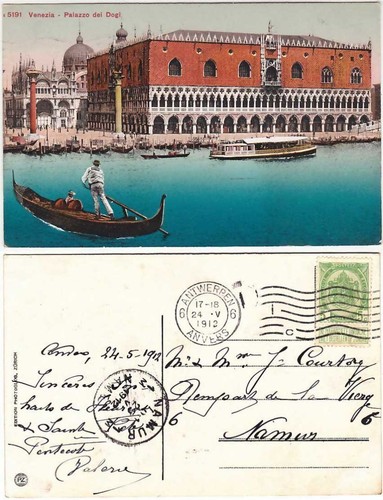 5191 Venezia - Palazzo dei Dogi
ANTWERPEN
17-18
6 24 V 6
1912
ANVERS
Anvers, 24-5-1912
Sincères
& Sainte
Pentecôte
Valerie
NAMUR
M. & Mme J. Courtoy
Rempart de la Vierge
6 6
Namur
EDITION PHOTOGLOB, ZÜRICH
PZ